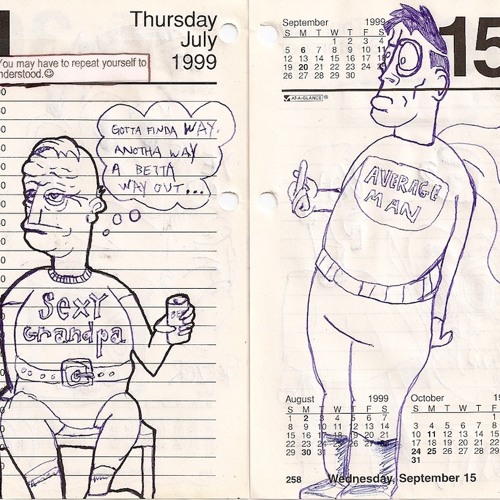 Thursday
July
1999
You may have to repeat yourself to
nderstood.☺
GOTTA FINDA WAY,
ANOTHA WAY
A BETTA
WAY OUT...
SEXY
Grandpa
September 1999
15
S M T W T F S
1 2 3 4
5 6 7 8 9 10 11
12 13 14 15 16 17 18
19 20 21 22 23 24 25
26 27 28 29 30
AT-A-GLANCE
AVERAGE
MAN
August 1999
S M T W T F S
1 2 3 4 5 6 7
8 9 10 11 12 13 14
15 16 17 18 19 20 21
22 23 24 25 26 27 28
29 30 31
October
S M T W T
3 4 5 6 7
10 11 12 13 14
17 18 19 20 21
24 25 26 27 28
31
258 Wednesday, September 15